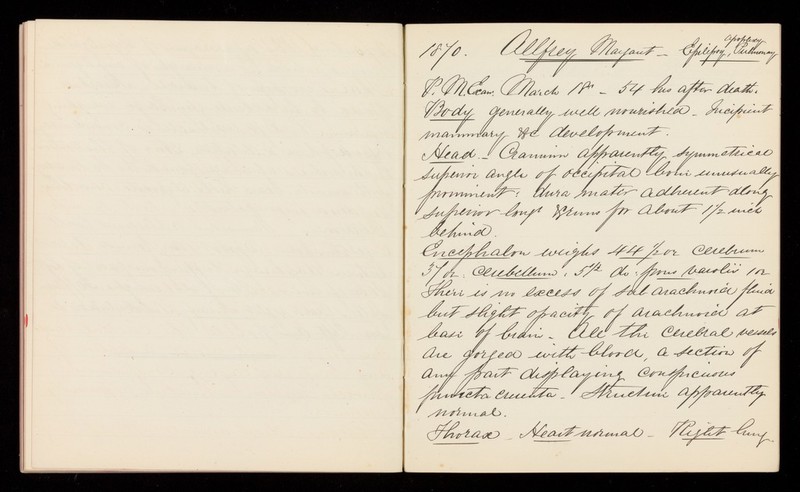 1870. Allfrey Margaret - Epilepsy, Pulmonary apoplexy
P. M. Exam. March 18th - 54 hrs after death.
Body generally well nourished - Incipient
mammary &c development.
Head - Cranium apparently symmetrical
superior angle of occipital bone unusually
prominent. dura mater adherent along
superior longl for about 1 1/2 inch
behind.
Encephalon weighs 44 1/2 oz cerebrum
37 oz. cerebellum. 5 1/2 do: pons varolii 1 oz
There is no excess of sub arachnoid fluid
but slight opacity of arachnoid at
base of brain - All the cerebral vessels
are gorged with blood, a section of
any part displaying conspicuous
puncta cruenta - Structure apparently
normal.
Thorax - Heart normal - Right lung